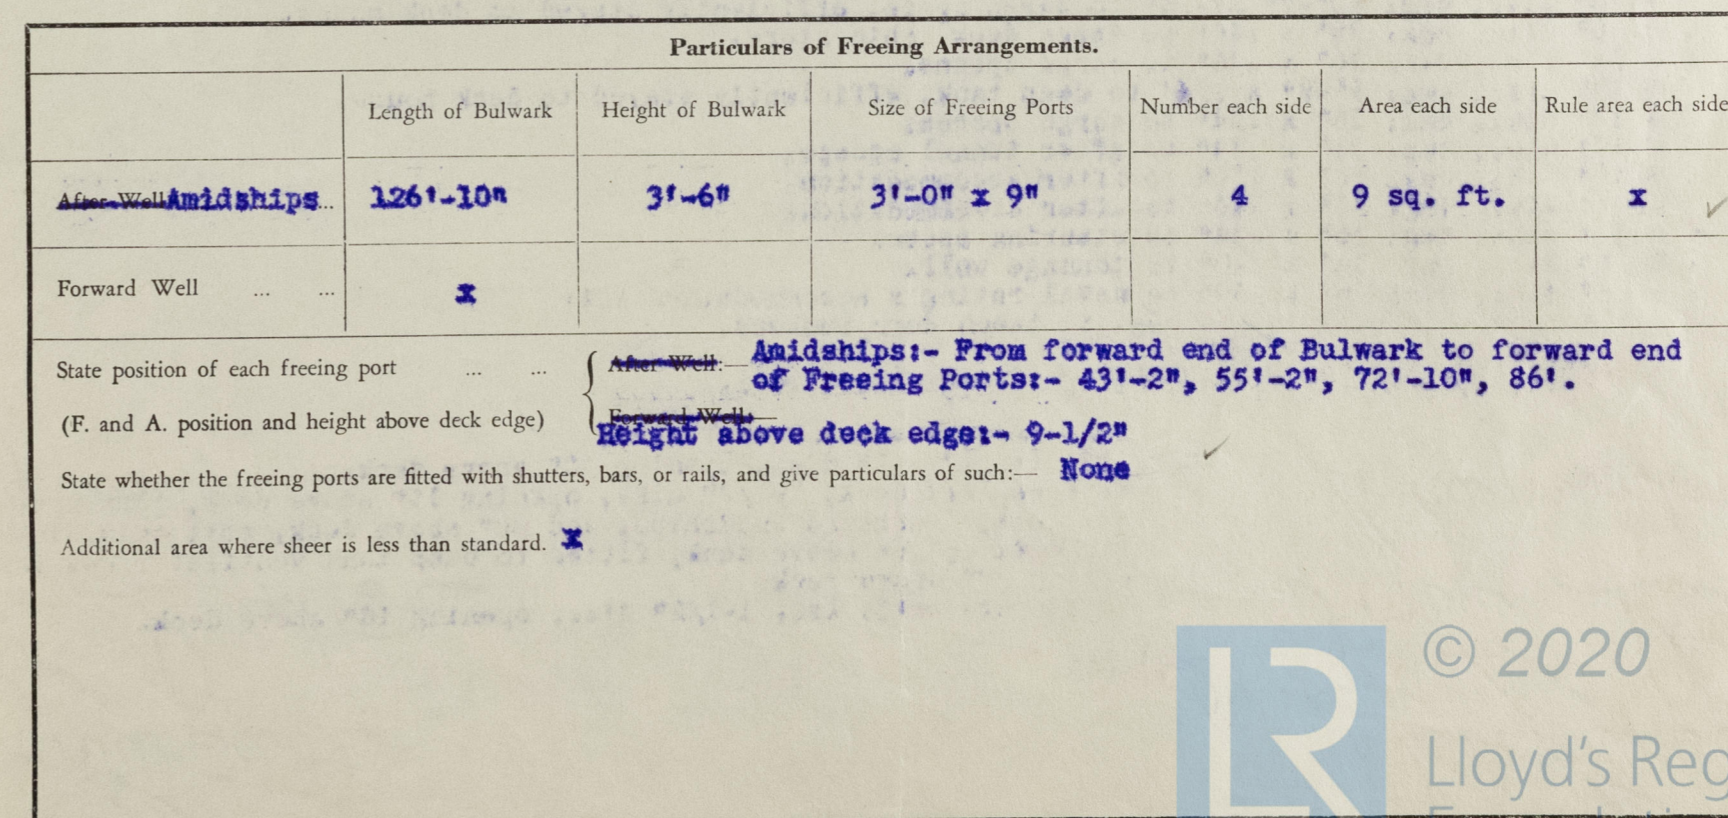 Particulars of Freeing Arrangements.
Length of Bulwark Height of Bulwark Size of Freeing Ports Number each side Area each side Rule area each side
After Well Amidships... 126'-10" 3'-6" 3'-0" x 9" 4 9 sq. ft. x
Forward Well ... ... x
State position of each freeing port ... ... After Well:— Amidships:- From forward end of Bulwark to forward end
of Freeing Ports:- 43'-2", 55'-2", 72'-10", 86'.
(F. and A. position and height above deck edge) Forward Well:—
Height above deck edge:- 9-1/2"
State whether the freeing ports are fitted with shutters, bars, or rails, and give particulars of such:— None
Additional area where sheer is less than standard. x
© 2020
LR
Lloyd's Reg